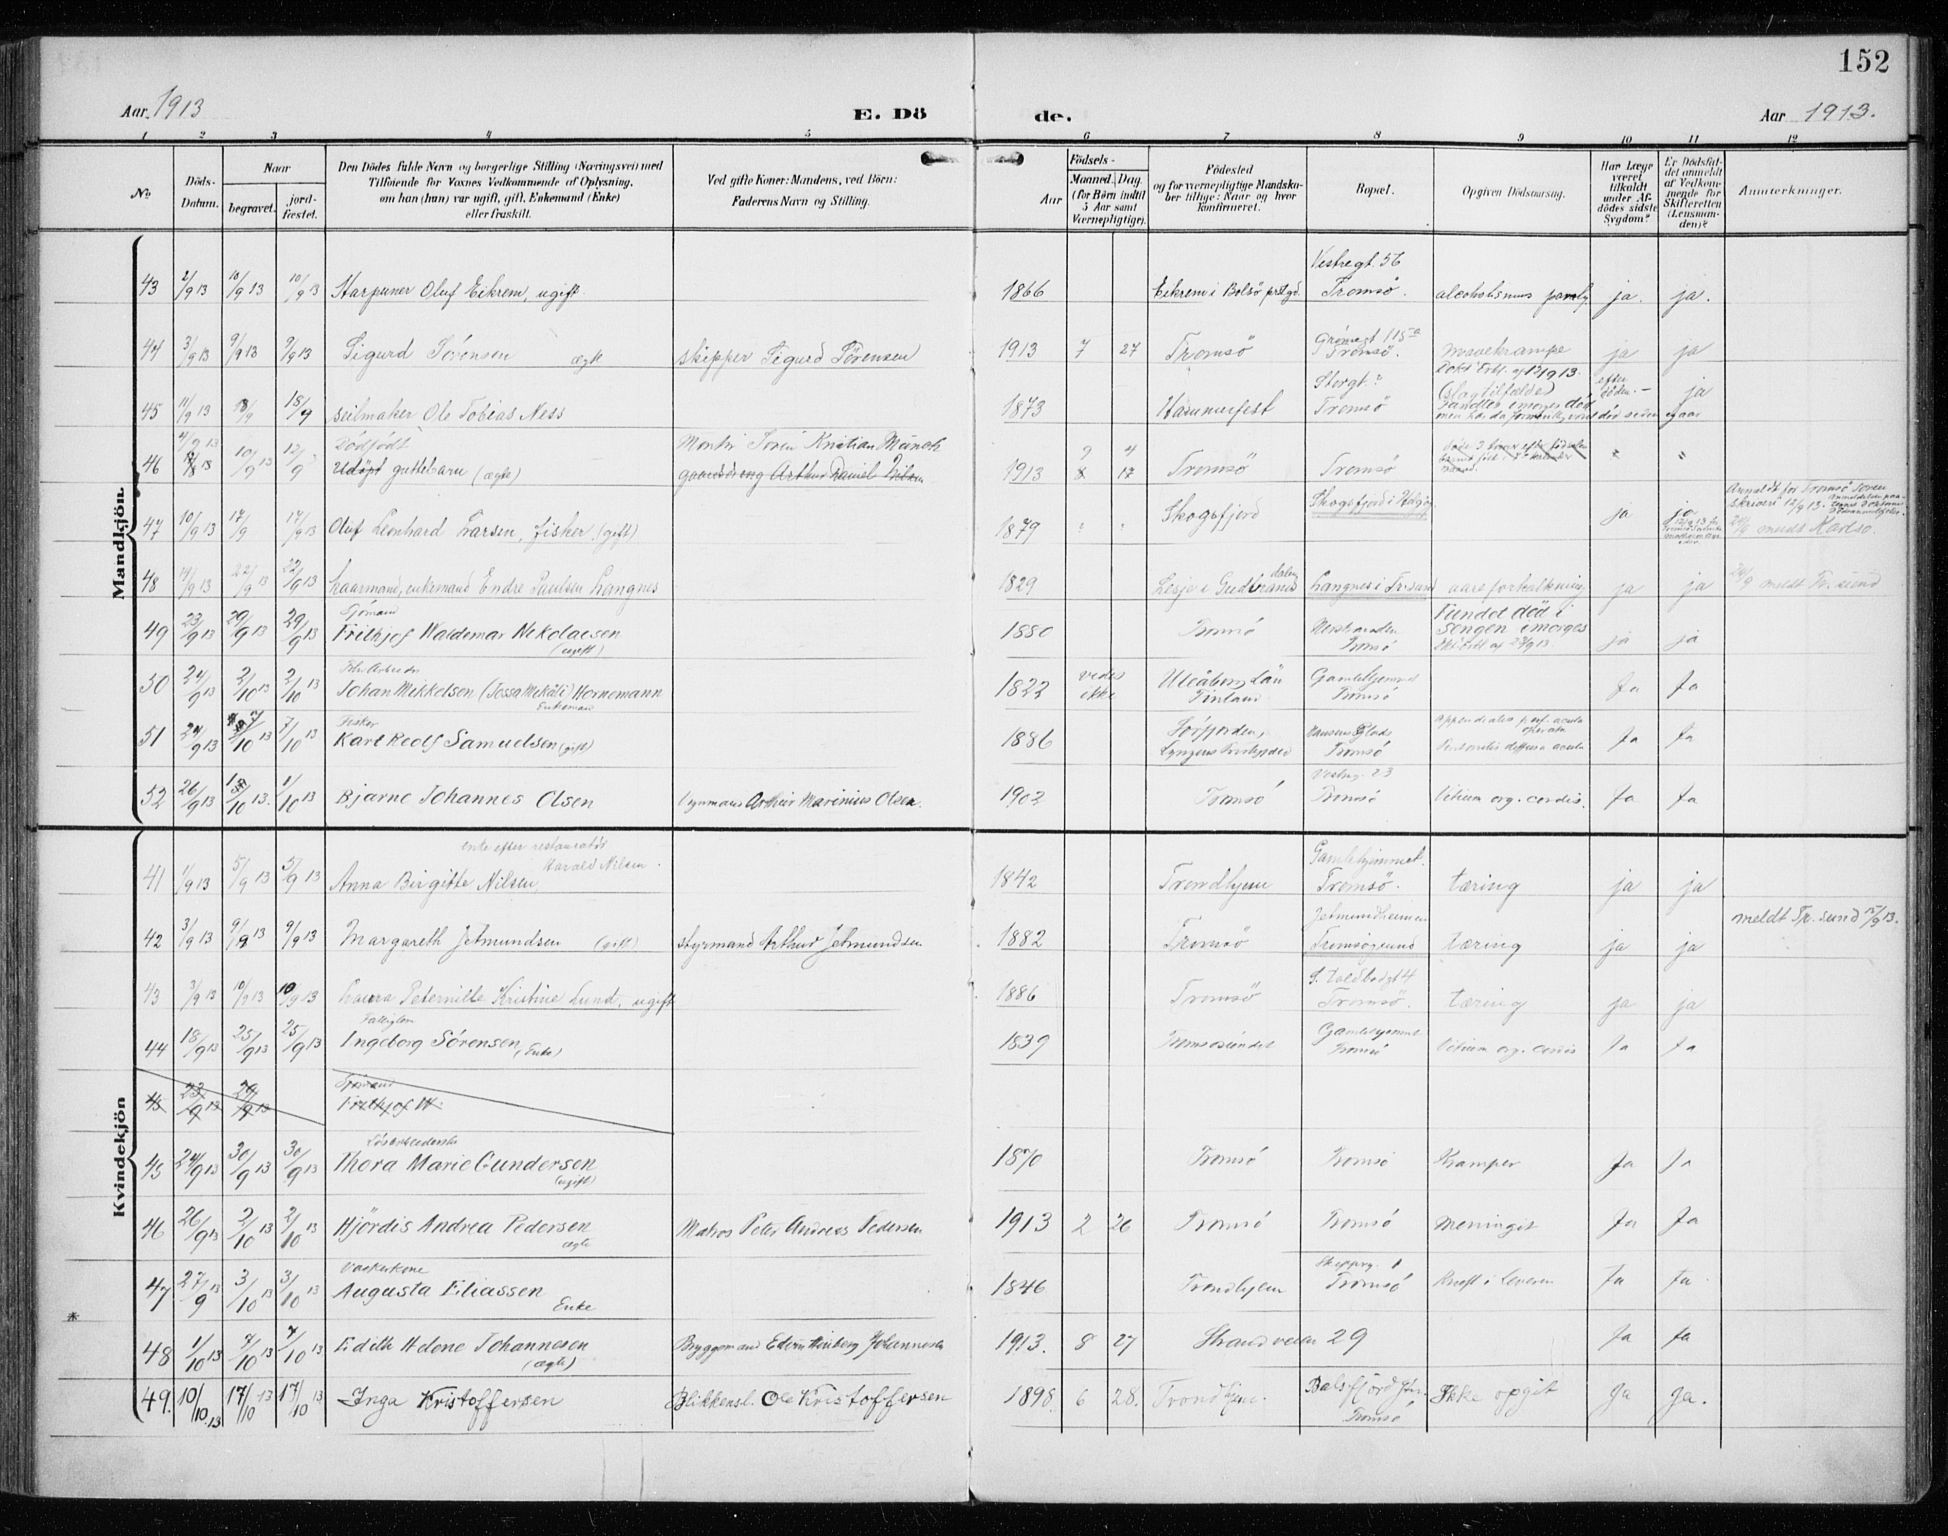 152
Aar 1913 E. Dö de. Aar 1913.
1 2 3 4 5 6 7 8 9 10 11 12
No. Döds-Datum. Naar begravet. jordfæstet. Den Dödes fulde Navn og borgerlige Stilling (Næringsvei) med Tilföiende for Voxnes Vedkommende af Oplysning, om han (hun) var ugift, gift, Enkemand (Enke) eller fraskilt. Ved gifte Koner: Mandens, ved Börn: Faderens Navn og Stilling. Födsels- Aar Maaned. Dag. (for Börn indtil 5 Aar samt Værnepligtige). Födested og for værnepligtige Mandskaber tillige: Naar og hvor konfirmeret. Bopæl. Opgiven Dödsaarsag. Har Læge været tilkaldt under Afdödes sidste Sygdom? Er Dödsfaldet anmeldt af Vedkommende for Skifteretten (Lensmanden)? Anmerkninger.
Mandkjön.
43 2/9 13 10/9 13 10/9 13 Harpuner Oluf Eikrem, ugift 1866 Eikrem i Bolsö prstgd. Vestregt. 56 Tromsö. alcoholismus ja. ja.
44 3/9 13 9/9 13 9/9 13 Sigurd Sörensen ægte skipper Sigurd Sörensen 1913 7 27 Tromsö Grönnegt 115a Tromsö. mavekrampe ja ja
45 11/9 13 18/9 18/9 seilmaker Ole Tobias Ness 1873 Hammerfest Storgt. Tromsö (slagtilfælde) efter döden. ja
46 10/9 13 12/9 Dödfödt Udöpt guttebarn (ægte) Montör Sören Kristian Münch 1913 Tromsö Tromsö
47 10/9 13 17/9 17/9 13 Oluf Leonhard Larsen, fisker (gift) 1879 Skogsfjord Skogsfjord i Helgöy ja ja Anmeldt for Tromsö Soren skriveri 12/9 13. meldt Karlsö.
48 14/9 13 22/9 13 22/9 13 kaarmand, enkemand Endre Paulsen Langnes 1829 Lesje i Gudbrandsdalen Langnes i Tr.sund aareforkalkning ja ja 24/9 meldt Tr.sund
49 23/9 13 29/9 13 29/9 13 Sjömand Frithjof Waldemar Nikolaisen (ugift) 1880 Tromsö Tromsö Fundet död i sengen imorges ja ja
50 24/9 13 2/10 13 2/10 13 Johan Mikkelsen (Jossa Mikali) Hornemann Enkemand 1822 vides ikke Uleåborg Län Finland Gamlehjemmet Tromsö Ja Ja
51 24/9 13 7/10 13 7/10 13 Fisker Karl Rolf Samuelsen (gift) 1886 Sörfjorden, Tromsö Ja Ja
52 26/9 13 1/10 13. 1/10 13 Bjarne Johannes Olsen Styrmand Arthur Marinius Olsen. 1902 Tromsö Vestreg. 23 Tromsö Vitium org. cordis. Ja Ja
Kvindekjön
41 1/9 13 5/9 13 5/9 13 enke efter restauratör Harald Nilsen. Anna Birgitte Nilsen, 1842 Trondhjem Gamlehjemmet. Tromsö. tæring ja ja
42 3/9 13 9/9 13 9/9 13 Margareth Jetmundsen (gift) styrmand Arthur Jetmundsen 1882 Tromsö Jetmundheimen Tromsösund tæring ja ja meldt Tr.sund 15/9 13.
43 3/9 13 10/9 13 10/9 13 Laura Peternille Kristine Lund, ugift 1886 Tromsö S. Toldbodgt 4 Tromsö. tæring ja ja
44 18/9 13 25/9 13 25/9 13 Fattiglem Ingeborg Sörensen (Enke) 1839 Tromsösundet Gamlehjemmet Tromsö Vitium org. cordis Ja Ja
45 23/9 13 29/9 13 Sjömand Frithjof W.
45 24/9 13 30/9 13 30/9 13 Lösarbeiderske Thora Marie Gundersen (ugift) 1870 Tromsö Tromsö Kramper Ja Ja
46 26/9 13 2/10 13 2/10 13 Hjördis Andrea Pedersen ægte Matros Peter Andreas Pedersen 1913 2 26 Tromsö Tromsö Meningit Ja Ja
47 27/9 13 3/10 13 3/10 13 Vaskerkone Augusta Eliassen Enke 1846 Trondhjem Skipperg. 1 Tromsö Kræft i Leveren Ja Ja
*
48 1/10 13 7/10 13 7/10 13 Edith Helene Johannesen (ægte) Bryggemand Johannesen 1913. 8 27 Strandveien 29 Ja Ja
49. 10/10 13 17/10 13 17/10 13 Inga Kristoffersen Blikkensl. Ole Kristoffersen 1898 6 28. Trondhjem. Balsfjord Tromsö Ikke opgit Ja Ja.